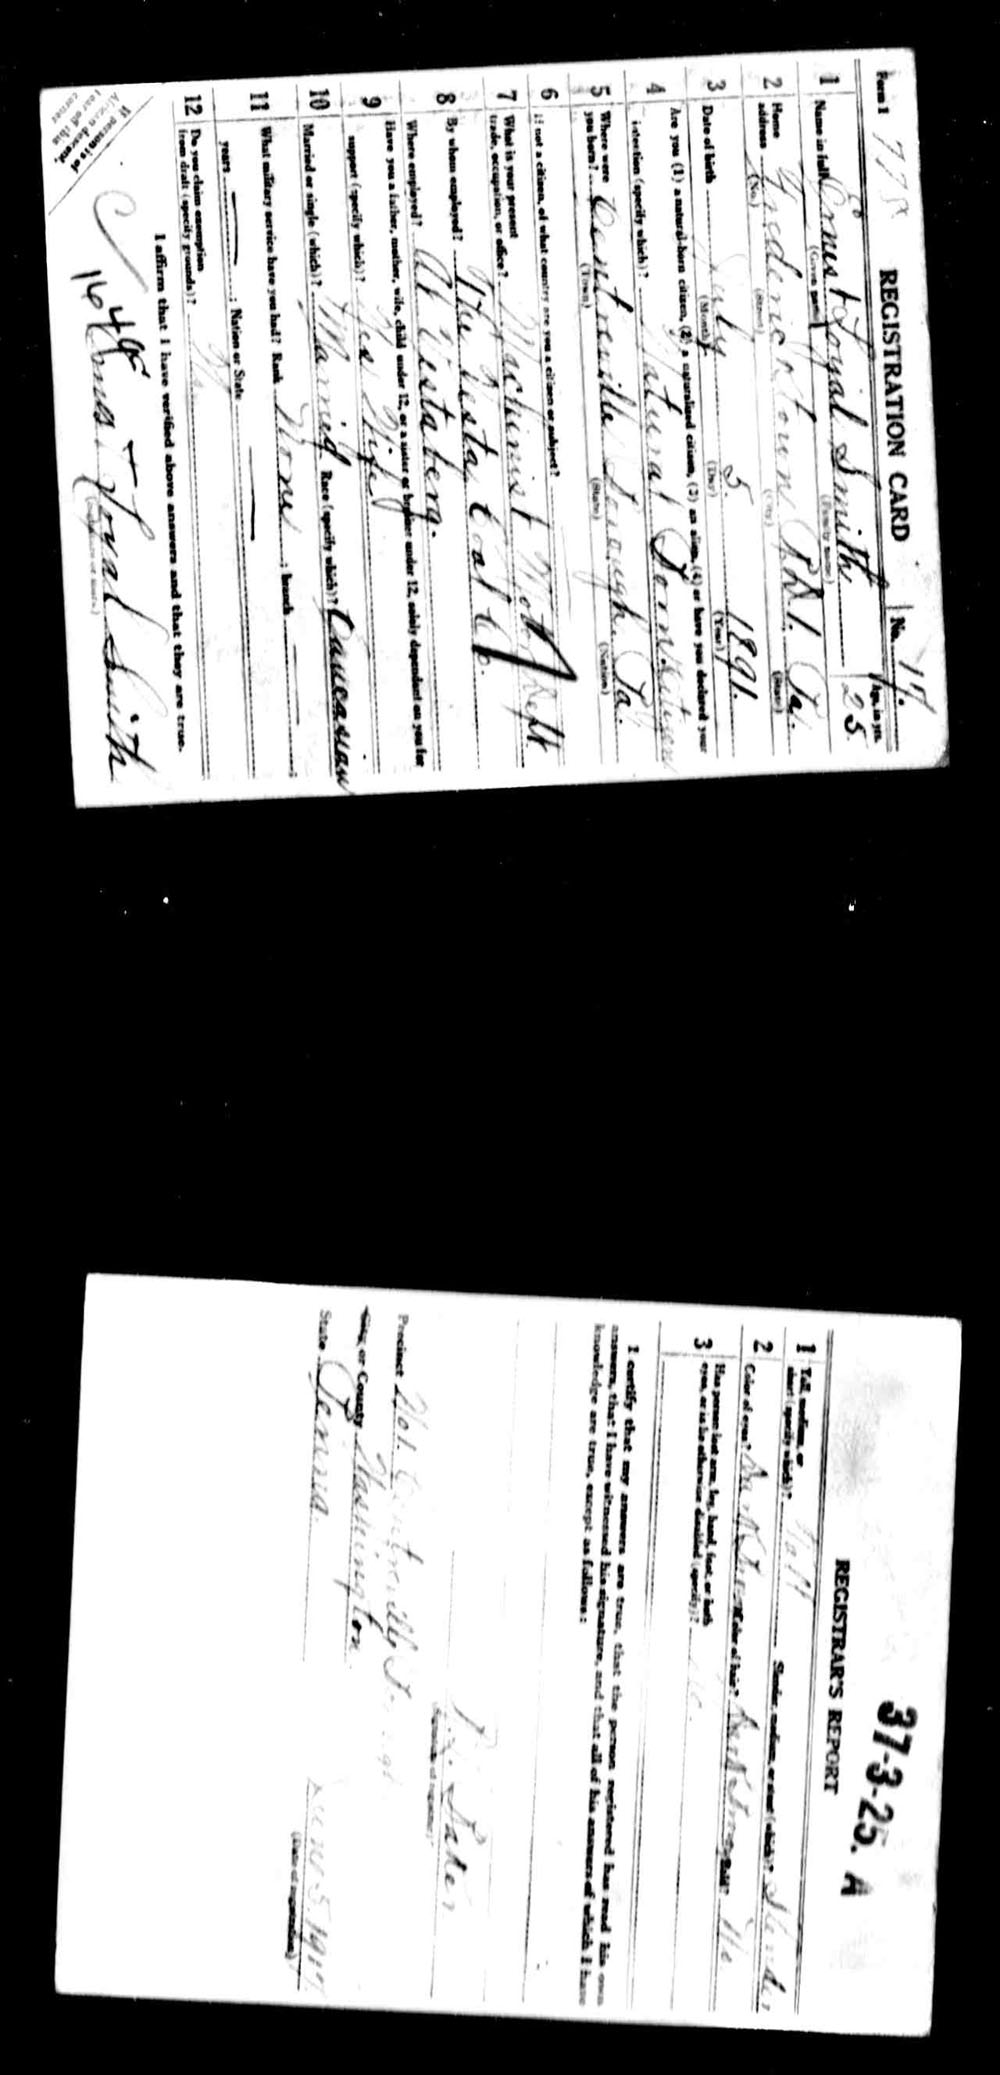 Form 1 778 REGISTRATION CARD No. 17
1 Name in full Ernest Loyal Smith Age, in yrs. 25
(Given name) (Family name)
2 Home address Fredericktown R.D.1. Pa.
(No.) (Street) (City) (State)
3 Date of birth July 5 1891.
(Month) (Day) (Year)
4 Are you (1) a natural-born citizen, (2) a naturalized citizen, (3) an alien, (4) or have you declared your
intention (specify which)? Natural
5 Where were you born? Centreville Pa.
(Town) (State) (Nation)
6 If not a citizen, of what country are you a citizen or subject?
7 What is your present trade, occupation, or office? Machinist
8 By whom employed? The Vesta Coal Co.
Where employed? At Vestaberg.
9 Have you a father, mother, wife, child under 12, or a sister or brother under 12, solely dependent on you for
support (specify which)? Yes Wife
10 Married or single (which)? Married Race (specify which)? Caucasian
11 What military service have you had? Rank None ; branch
years ; Nation or State
12 Do you claim exemption from draft (specify grounds)?
I affirm that I have verified above answers and that they are true.
1648
Ernest Loyal Smith
(Signature or mark)
If person is of African descent, tear off this corner
37-3-25. A
REGISTRAR'S REPORT
1 Tall, medium, or short (specify which)? Tall Slender, medium, or stout (which)? Slender
2 Color of eyes? Dark Brown Color of hair? Dark Brown Bald? No
3 Has person lost arm, leg, hand, foot, or both
eyes, or is he otherwise disabled (specify)? No.
I certify that my answers are true, that the person registered has read his own
answers, that I have witnessed his signature, and that all of his answers of which I have
knowledge are true, except as follows:
Baker
(Signature of registrar)
Precinct No1. Centreville
City or County Washington
State Penna.
June 5 1917
(Date of registration)